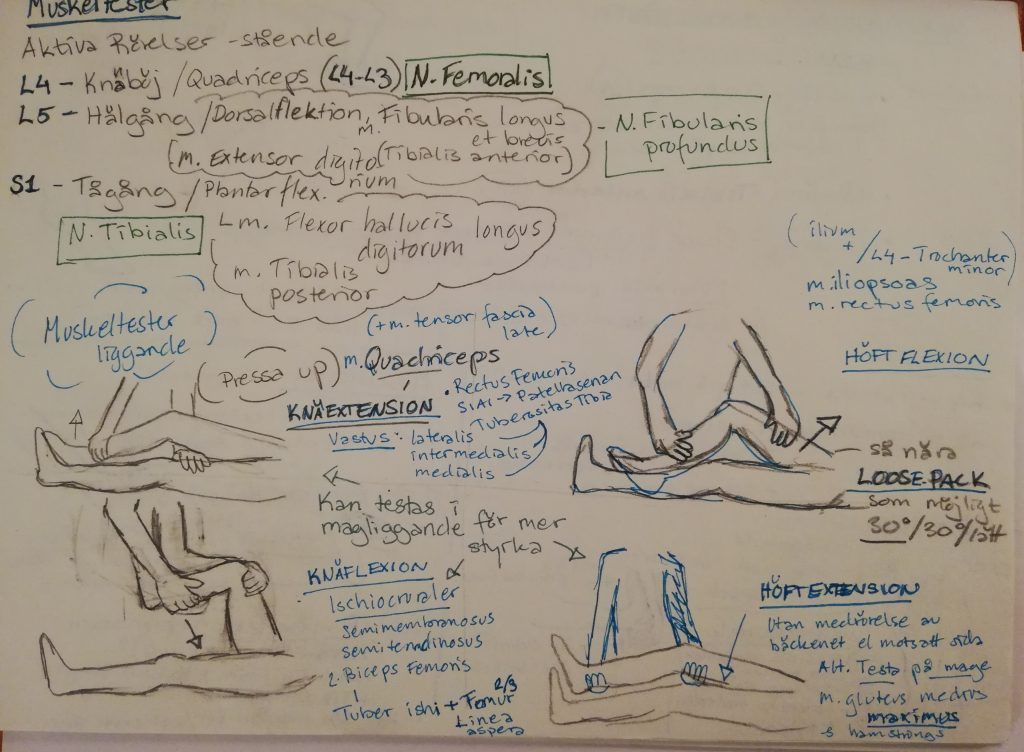 Muskeltester
Aktiva Rörelser - stående
L4 - Knäböj / Quadriceps (L4-L3) N. Femoralis
L5 - Hälgång / Dorsalflektion, m. Fibularis longus
et brevis
(m. Extensor digitorium (Tibialis anterior)
- N. Fibularis
profundus
S1 - Tågång / Plantarflex.
N. Tibialis
m. Flexor hallucis longus
digitorum
m. Tibialis
posterior
(ilium
+ /L4 - Trochanter
minor)
m. iliopsoas
m. rectus femoris
(Muskeltester
liggande)
(+ m. tensor fascia
late)
(Pressa up)
m. Quadriceps
KNÄEXTENSION
• Rectus Femoris
SIAI → Patellasenan
Tuberositas Tibia
Vastus: lateralis
intermedialis
medialis
HÖFTFLEXION
så nära
LOOSE-PACK
som möjligt
30°/30°/lätt
Kan testas i
magliggande för mer
styrka
KNÄFLEXION
Ischiocruraler
semimembranosus
semitendinosus
2. Biceps Femoris
Tuber ishi + Femur 2/3
Linea
aspera
HÖFTEXTENSION
Utan medrörelse av
bäckenet el motsatt sida
Alt. Testa på mage
m. gluteus medius
maximus
hamstrings